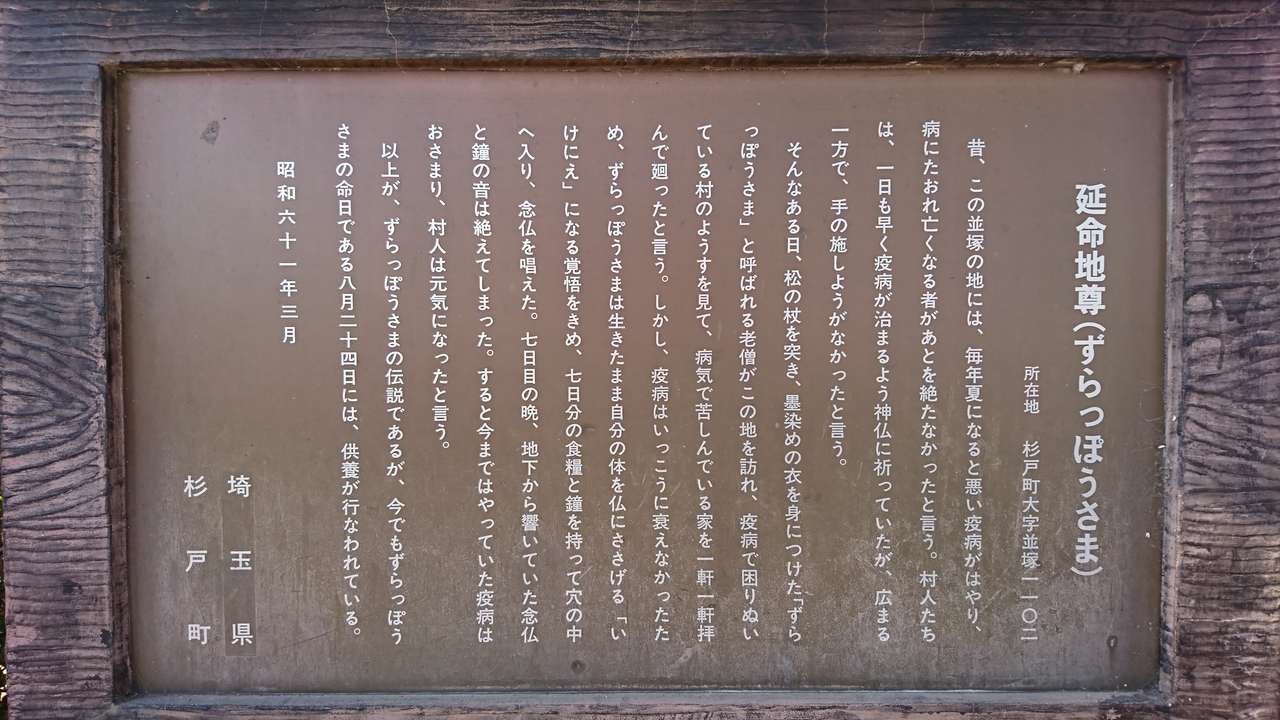 延命地尊(ずらっぽうさま)
所在地　杉戸町大字並塚一一〇二
昔、この並塚の地には、毎年夏になると悪い疫病がはやり、
病にたおれ亡くなる者があとを絶たなかったと言う。村人たち
は、一日も早く疫病が治まるよう神仏に祈っていたが、広まる
一方で、手の施しようがなかったと言う。
そんなある日、松の杖を突き、墨染めの衣を身につけた「ずら
っぽうさま」と呼ばれる老僧がこの地を訪れ、疫病で困りぬい
ている村のようすを見て、病気で苦しんでいる家を一軒一軒拝
んで廻ったと言う。しかし、疫病はいっこうに衰えなかったた
め、ずらっぽうさまは生きたまま自分の体を仏にささげる「い
けにえ」になる覚悟をきめ、七日分の食糧と鐘を持って穴の中
へ入り、念仏を唱えた。七日目の晩、地下から響いていた念仏
と鐘の音は絶えてしまった。すると今まではやっていた疫病は
おさまり、村人は元気になったと言う。
以上が、ずらっぽうさまの伝説であるが、今でもずらっぽう
さまの命日である八月二十四日には、供養が行なわれている。
昭和六十一年三月
埼玉県
杉戸町